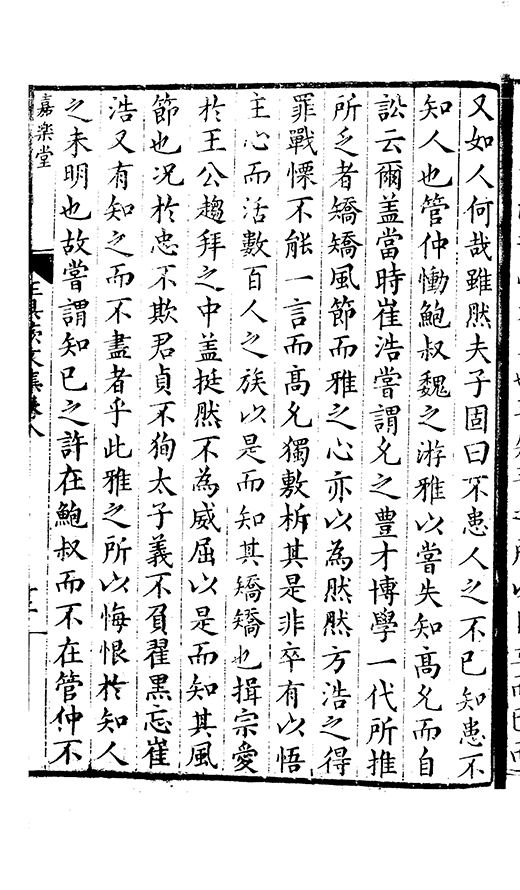 又如人何哉雖然夫子固曰不患人之不已知患不
知人也管仲慟鮑叔魏之游雅以嘗失知高允而自
訟云爾盖當時崔浩嘗謂允之豊才博學一代所推
所乏者矯矯風節而雅之心亦以為然然方浩之得
罪戰慄不能一言而高允獨敷析其是非卒有以悟
主心而活數百人之族以是而知其矯矯也揖宗愛
於王公趨拜之中盖挺然不為威屈以是而知其風
節也况於忠不欺君貞不狥太子義不負翟黒忘崔
浩又有知之而不盡者乎此雅之所以悔恨於知人
之未明也故嘗謂知已之許在鮑叔而不在管仲不
嘉楽堂
王具茨文集卷八